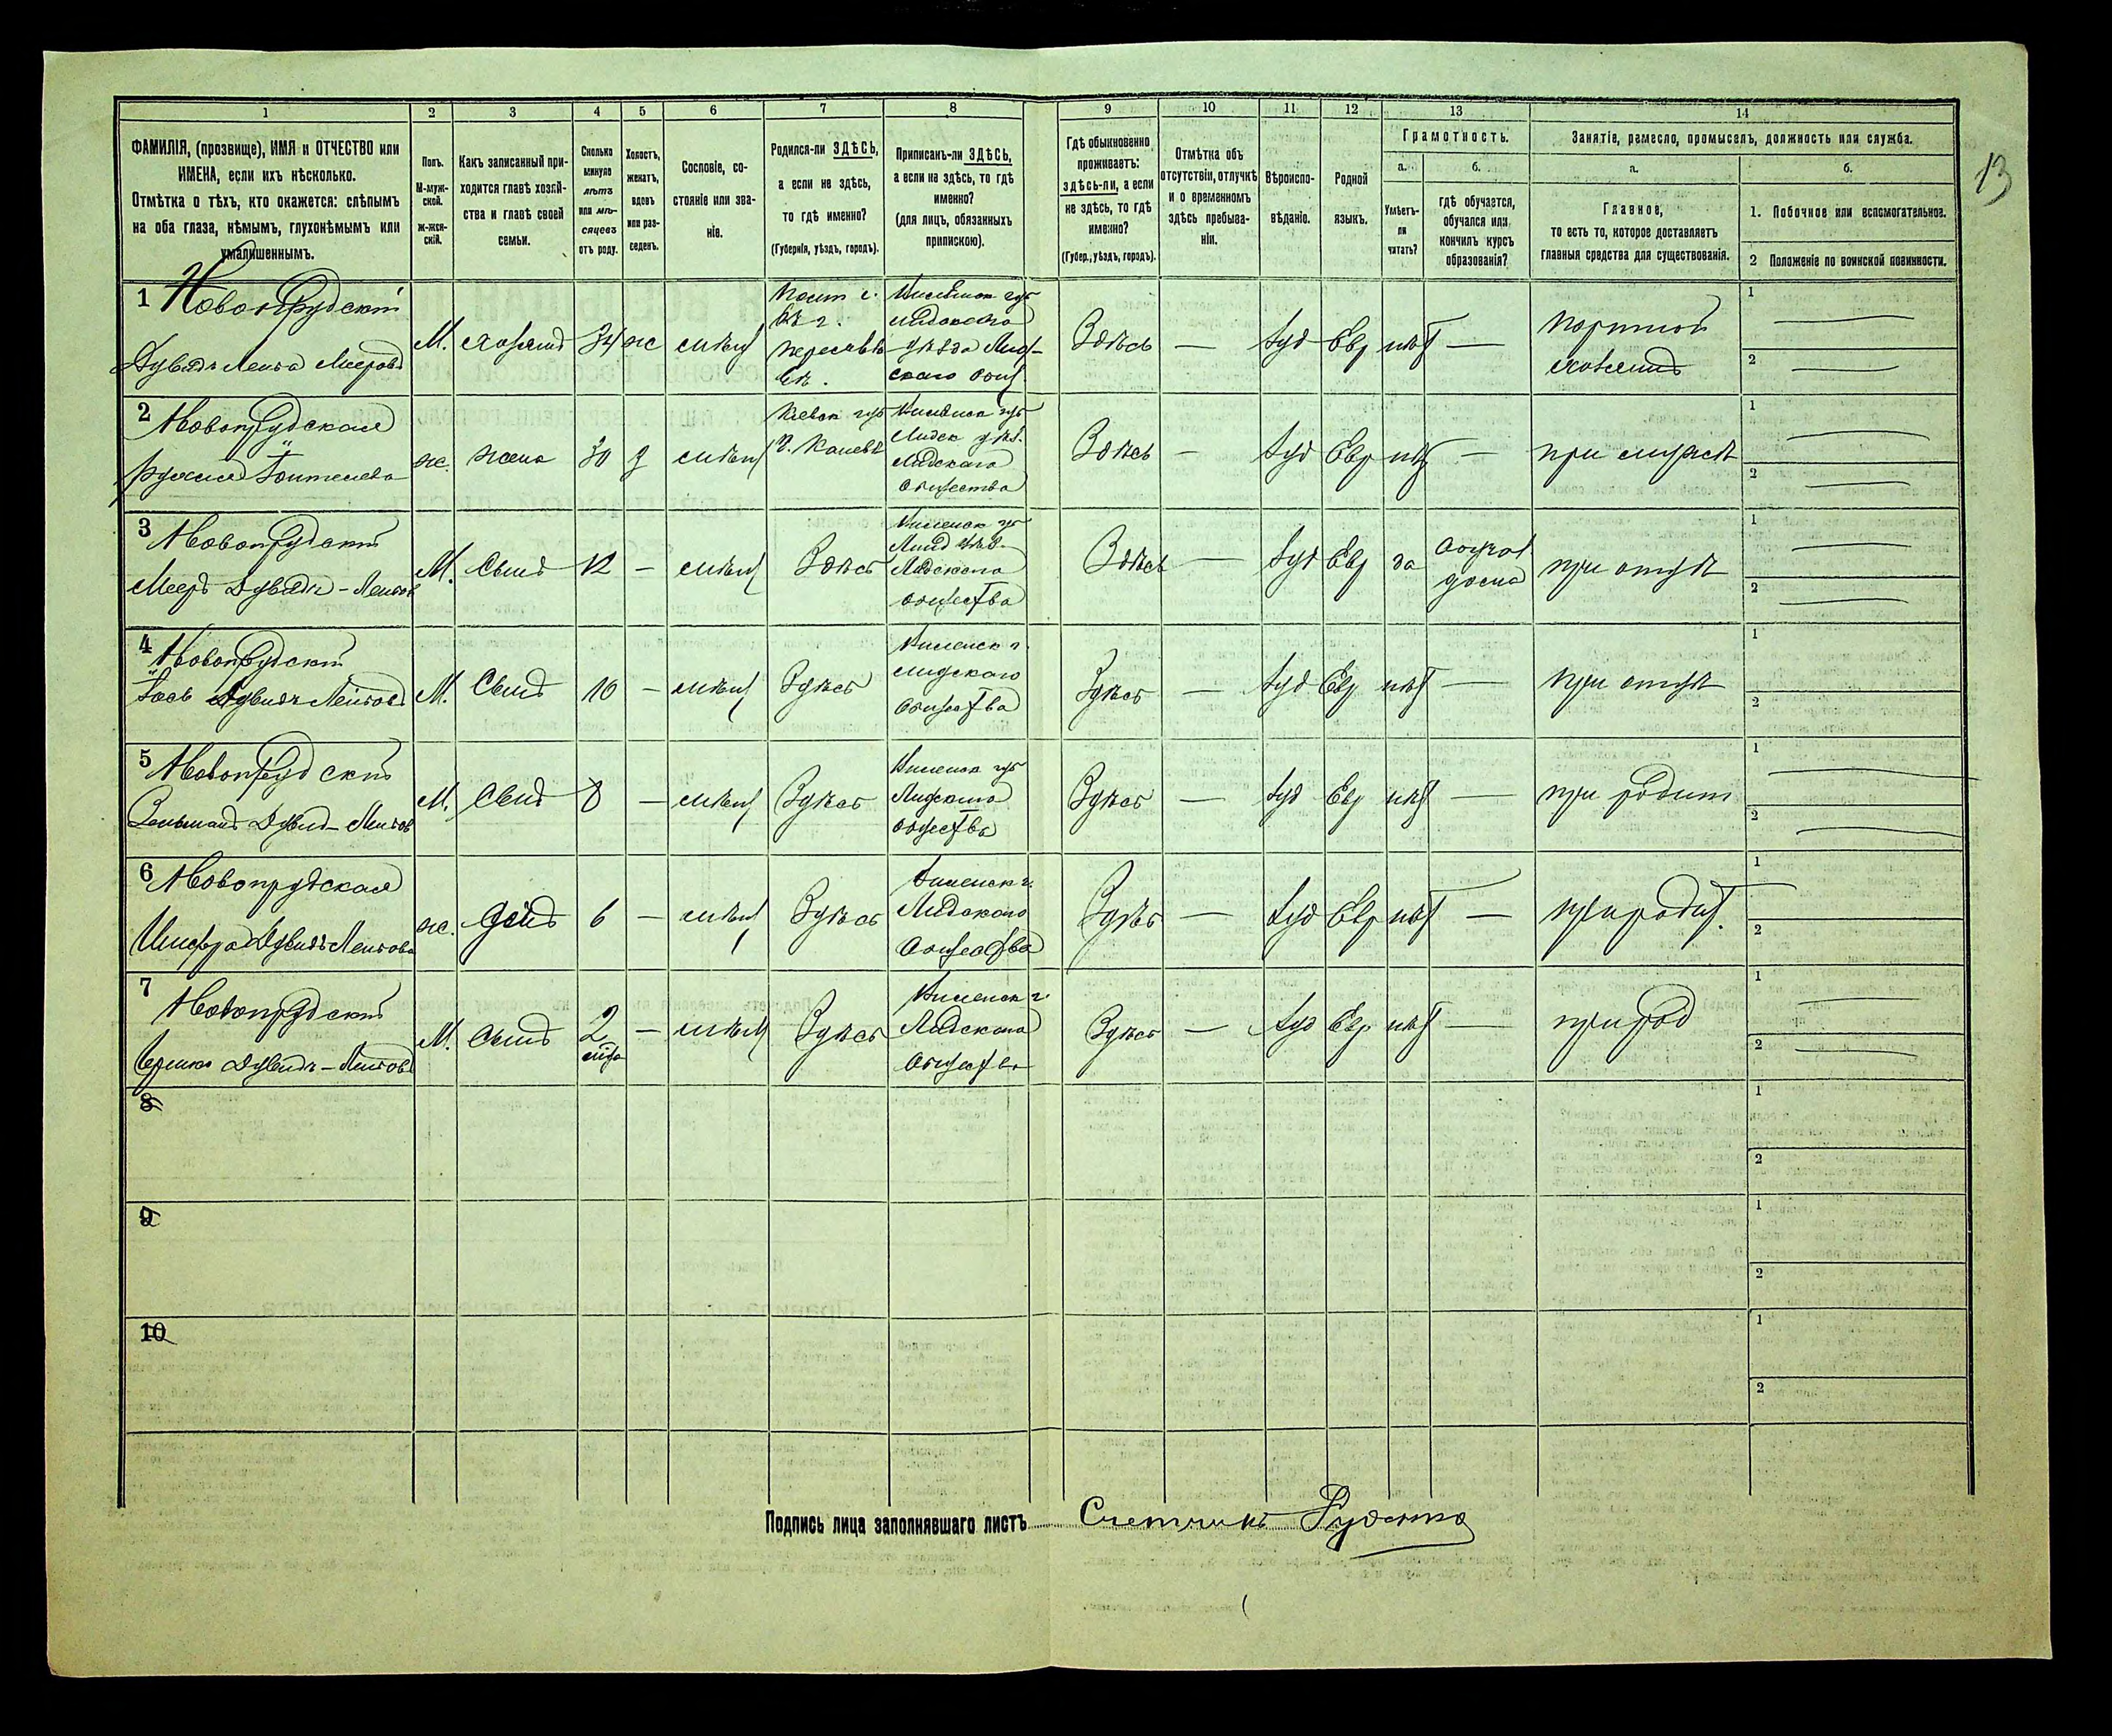 13
1 2 3 4 5 6 7 8 9 10 11 12 13 14
ФАМИЛІЯ, (прозвище), ИМЯ и ОТЧЕСТВО или
ИМЕНА, если ихъ нѣсколько.
Отмѣтка о тѣхъ, кто окажется: слѣпымъ
на оба глаза, нѣмымъ, глухонѣмымъ или
умалишеннымъ.
Полъ.
М-муж-
ской.
ж-жен-
скій.
Какъ записанный при-
ходится главѣ хозяй-
ства и главѣ своей
семьи.
Сколько
минуло
лѣтъ
или мѣ-
сяцевъ
отъ роду.
Холостъ,
женатъ,
вдовъ
или раз-
веденъ.
Сословіе, со-
стояніе или зва-
ніе.
Родился-ли ЗДѢСЬ,
а если не здѣсь,
то гдѣ именно?
(Губернія, уѣздъ, городъ).
Приписанъ-ли ЗДѢСЬ,
а если не здѣсь, то гдѣ
именно?
(для лицъ, обязанныхъ
припискою).
Гдѣ обыкновенно
проживаетъ:
здѣсь-ли, а если
не здѣсь, то гдѣ
именно?
(Губер., уѣздъ, городъ).
Отмѣтка объ
отсутствіи, отлучкѣ
и о временномъ
здѣсь пребыва-
ніи.
Вѣроиспо-
вѣданіе.
Родной
языкъ.
Грамотность.
а.
Умѣетъ-
ли
читать?
б.
гдѣ обучается,
обучался или
кончилъ курсъ
образованія?
Занятіе, ремесло, промыселъ, должность или служба.
а.
Главное,
то есть то, которое доставляетъ
главныя средства для существованія.
б.
1. Побочное или вспомогательное.
2 Положеніе по воинской повинности.
1 Новопрудскій
Дувидъ Лейба Мееровъ
М. хозяинъ 34 ж мѣщ
Виленск губ
Лидскаго
уѣзда Лид-
скаго общ.
Здѣсь — Іуд Евр нѣт —
портной
хозяинъ
1
2
2 Новопрудская
ж. жена 30 з мѣщ
Кіевск губ
г. Каневъ
Виленск губ
Лидск уѣз.
Лидскаго
общества
Здѣсь — Іуд Евр нѣт — при мужѣ
1
2
3 Новопрудскій
Мееръ Дувидъ-Лейбов
М. Сынъ 12 — мѣщ Здѣсь
Виленск губ
Лид уѣз.
Лидскаго
общества
Здѣсь — Іуд Евр да
дома
при отцѣ
1
2
4 Новопрудскій
Іось Дувидъ Лейбовъ
М. Сынъ 10 — мѣщ Здѣсь
Виленск г.
Лидскаго
общества
Здѣсь — Іуд Евр нѣт — при отцѣ
1
2
5 Новопрудскій
Зельманъ Дувид-Лейбов
М. Сынъ 8 — мѣщ Здѣсь
Виленск губ
Лидскаго
общества
Здѣсь — Іуд Евр нѣт — при родит
1
2
6 Новопрудская
Дувидъ Лейбова
ж. дочь 6 — мѣщ Здѣсь
Виленск г.
Лидскаго
общества
Здѣсь — Іуд Евр нѣт — при родит.
1
2
7 Новопрудскій
Дувидъ-Лейбовъ
М. Сынъ 2 — мѣщ Здѣсь
Виленск г.
Лидскаго
общества
Здѣсь — Іуд Евр нѣт — при род
1
2
8
1
2
9
1
2
10
1
2
Подпись лица заполнявшаго листъ Счетчикъ